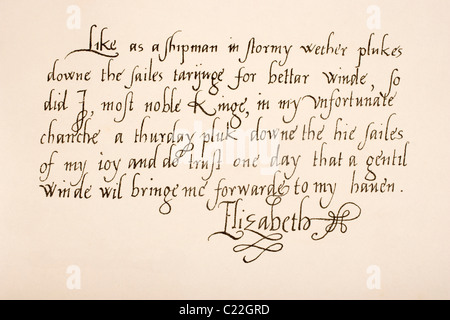 Like as a shipman in stormy wether plukes
downe the sailes tarijnge for bettar winde, so
did I, most noble Kinge, in my vnfortunate
chanche a thurday pluk downe the hie sailes
of my ioy and do trust one day that a gentil
winde wil bringe me forwarde to my hauen.
Elizabeth
alamy
Image ID: C22GRD
www.alamy.com